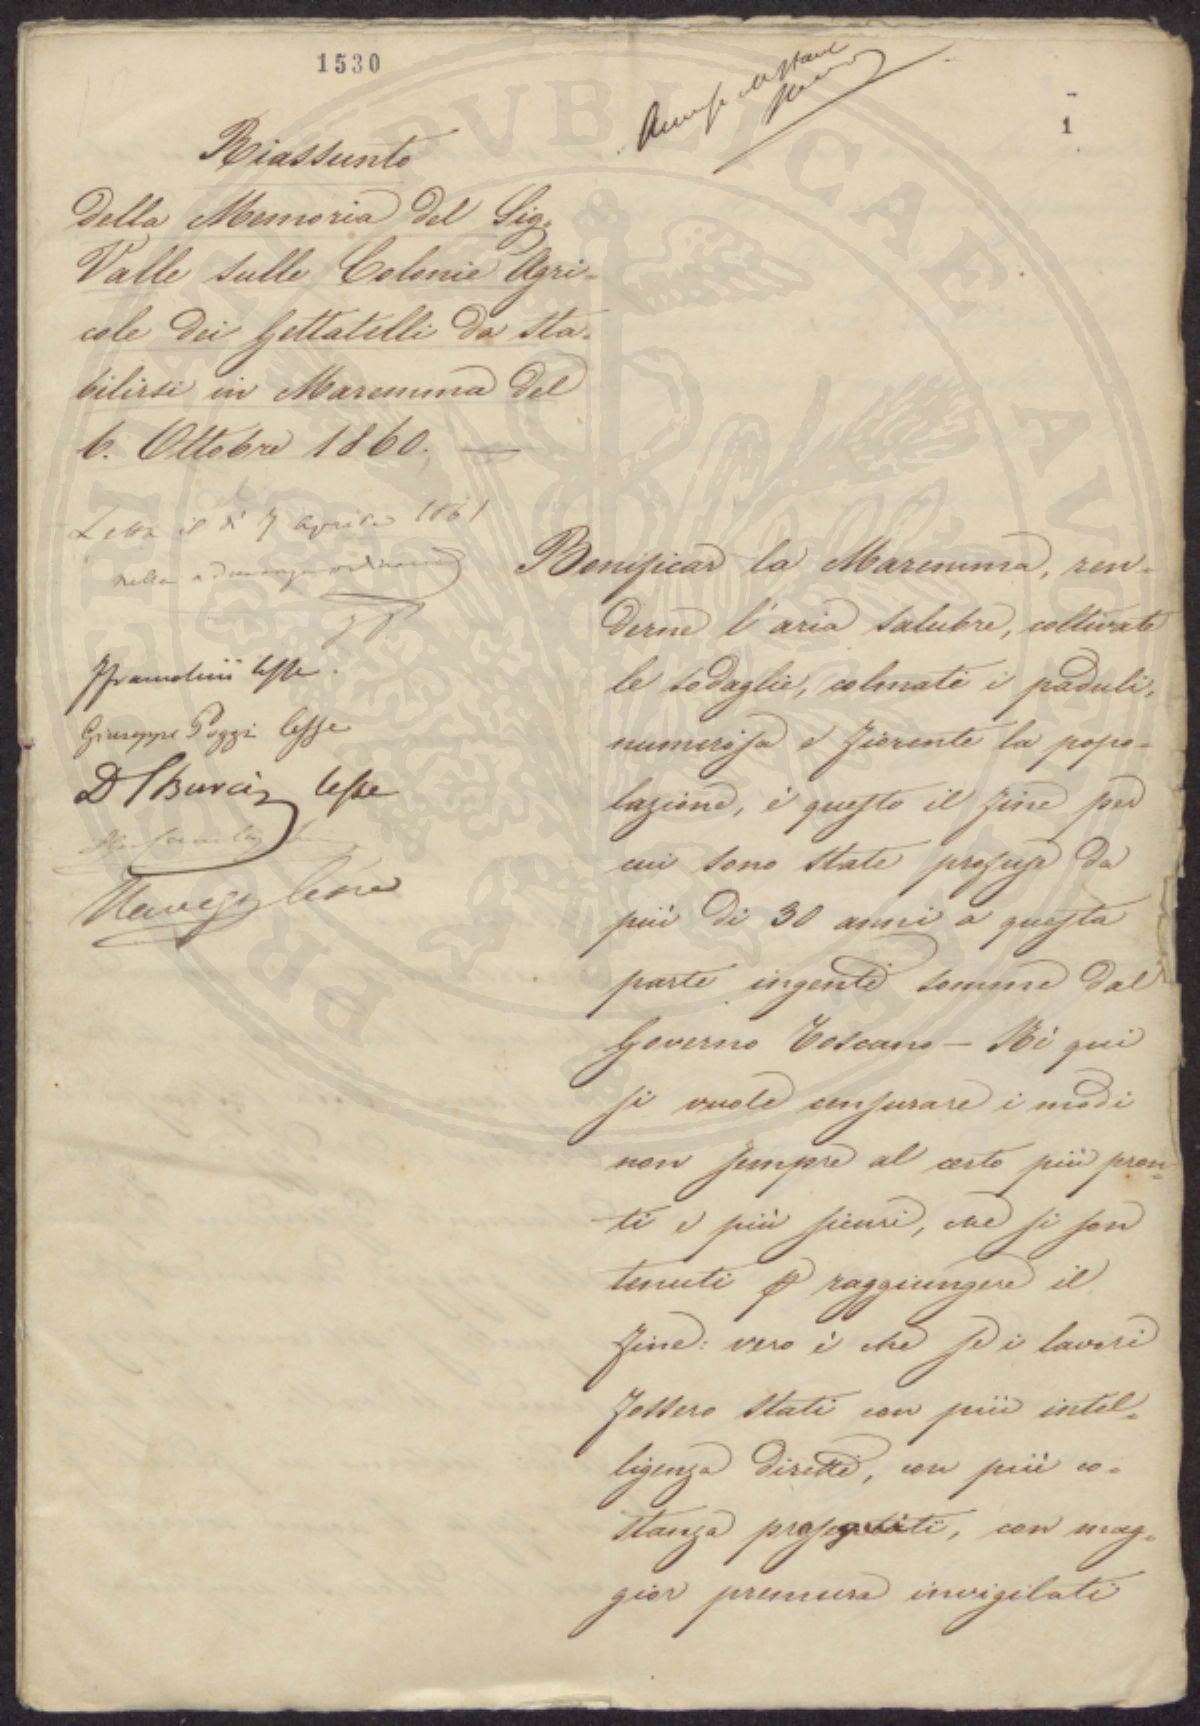 1530
1
Riassunto
della Memoria del Sig.
Valle sulle Colonie Agri=
cole dei Gettatelli da sta=
bilirsi in Maremma del
6. Ottobre 1860.
Letta il dì 7 Aprile 1861
nella adunanza ordinaria
lesse.
Giuseppe Poggi lesse
lesse
Bonificar la Maremma, ren=
derne l'aria salubre, coltivate
le sodaglie, colmati i paduli,
numerosa e fiorente la popo=
lazione, è questo il fine per
cui sono state profuse da
più di 30 anni a questa
parte ingenti somme dal
Governo Toscano — Nè qui
si vuole censurare i modi
non sempre al certo più pron=
ti e più sicuri, che si son
tenuti p raggiungere il
fine: vero è che se i lavori
fossero stati con più intel=
ligenza diretti, con più co=
stanza proseguiti, con mag=
gior premura invigilati
PVBLICAE